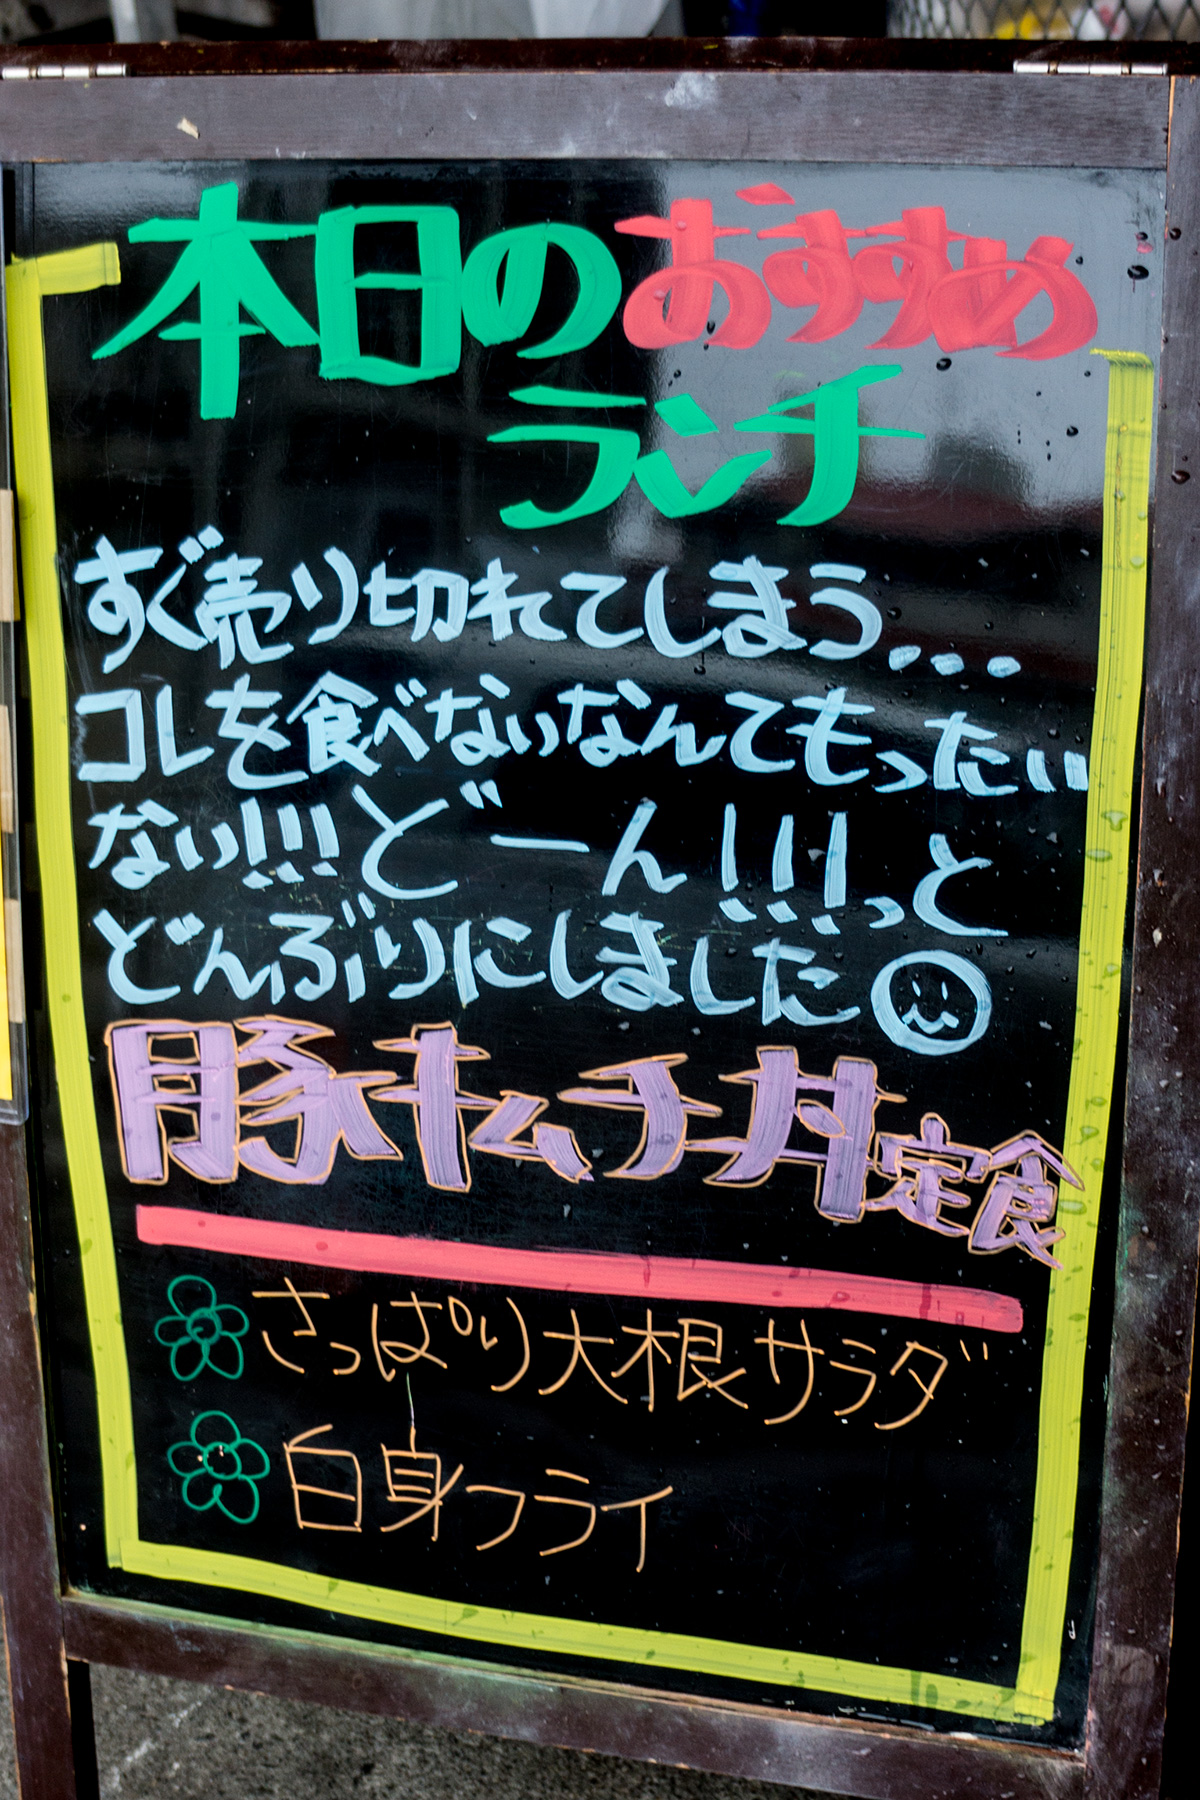 本日のおすすめ
ランチ
すぐ売り切れてしまう...
コレを食べないなんてもったい
ない!!!どーん!!!っと
どんぶりにしました
豚キムチ丼定食
さっぱり大根サラダ
白身フライ